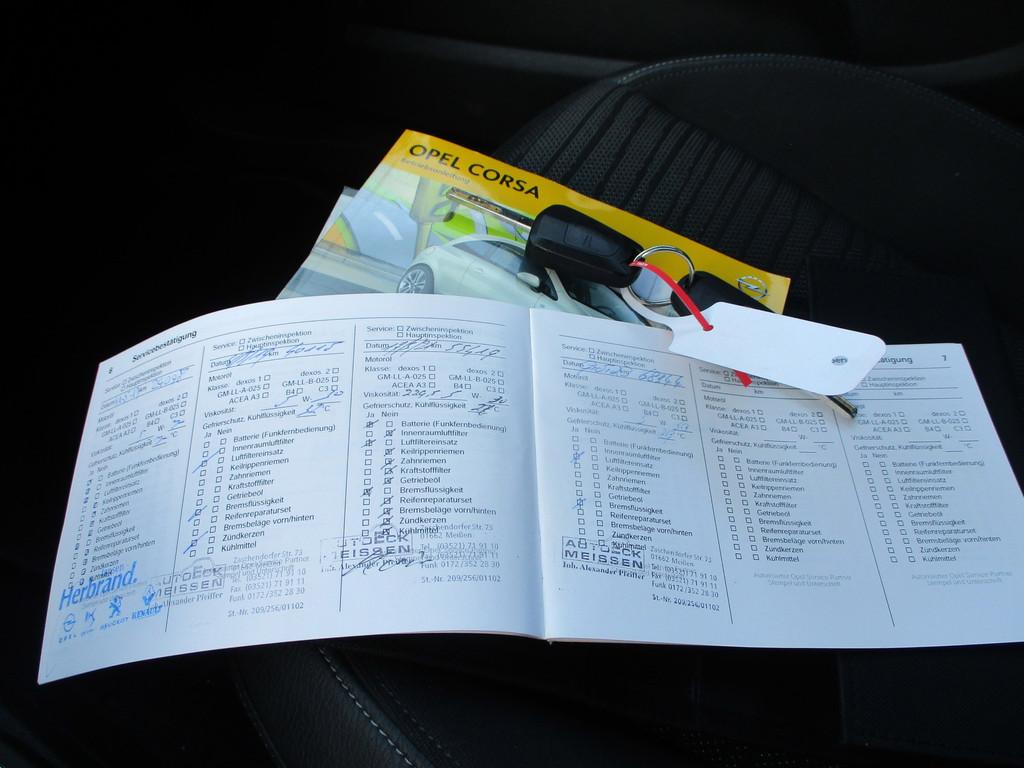 OPEL CORSA
Betriebsanleitung
6
Servicebestätigung
Service: Zwischeninspektion
Hauptinspektion
Datum km
Motoröl
Klasse: dexos 1 dexos 2
GM-LL-A-025 GM-LL-B-025
ACEA A3 B4 C3
Viskosität: W-
Gefrierschutz, Kühlflüssigkeit °C
Ja Nein
Batterie (Funkfernbedienung)
Innenraumluftfilter
Luftfiltereinsatz
Keilrippenriemen
Zahnriemen
Kraftstofffilter
Getriebeöl
Bremsflüssigkeit
Reifenreparaturset
Bremsbeläge vorn/hinten
Zündkerzen
Kühlmittel
Herbrand.
OPEL PEUGEOT RENAULT
Service: Zwischeninspektion
Hauptinspektion
Datum km
Motoröl
Klasse: dexos 1 dexos 2
GM-LL-A-025 GM-LL-B-025
ACEA A3 B4 C3
Viskosität: W-
Gefrierschutz, Kühlflüssigkeit °C
Ja Nein
Batterie (Funkfernbedienung)
Innenraumluftfilter
Luftfiltereinsatz
Keilrippenriemen
Zahnriemen
Kraftstofffilter
Getriebeöl
Bremsflüssigkeit
Reifenreparaturset
Bremsbeläge vorn/hinten
Zündkerzen
Kühlmittel
AUTOECK
MEISSEN
Alexander Pfeiffer
Zaschendorfer Str. 73
01662 Meißen
Tel. (03521) 71 91 10
Fax (03521) 71 91 11
Funk 0172/352 28 30
St.-Nr. 209/256/01102
Service: Zwischeninspektion
Hauptinspektion
Datum km
Motoröl
Klasse: dexos 1 dexos 2
GM-LL-A-025 GM-LL-B-025
ACEA A3 B4 C3
Viskosität: W-
Gefrierschutz, Kühlflüssigkeit °C
Ja Nein
Batterie (Funkfernbedienung)
Innenraumluftfilter
Luftfiltereinsatz
Keilrippenriemen
Zahnriemen
Kraftstofffilter
Getriebeöl
Bremsflüssigkeit
Reifenreparaturset
Bremsbeläge vorn/hinten
Zündkerzen
Kühlmittel
AUTOECK
MEISSEN
Inh. Alexander Pfeiffer
Zaschendorfer Str. 73
01662 Meißen
Tel. (03521) 71 91 10
Fax (03521) 71 91 11
Funk 0172/352 28 30
St.-Nr. 209/256/01102
Service: Zwischeninspektion
Hauptinspektion
Datum km
Motoröl
Klasse: dexos 1 dexos 2
GM-LL-A-025 GM-LL-B-025
ACEA A3 B4 C3
Viskosität: W-
Gefrierschutz, Kühlflüssigkeit °C
Ja Nein
Batterie (Funkfernbedienung)
Innenraumluftfilter
Luftfiltereinsatz
Keilrippenriemen
Zahnriemen
Kraftstofffilter
Getriebeöl
Bremsflüssigkeit
Reifenreparaturset
Bremsbeläge vorn/hinten
Zündkerzen
Kühlmittel
AUTOECK
MEISSEN
Inh. Alexander Pfeiffer
Zaschendorfer Str. 73
01662 Meißen
Tel. (03521) 71 91 10
Fax (03521) 71 91 11
Funk 0172/352 28 30
St.-Nr. 209/256/01102
Service:
Datum km
Motoröl
Klasse: dexos 1 dexos 2
GM-LL-A-025 GM-LL-B-025
ACEA A3 B4 C3
Viskosität: W-
Gefrierschutz, Kühlflüssigkeit °C
Ja Nein
Batterie (Funkfernbedienung)
Innenraumluftfilter
Luftfiltereinsatz
Keilrippenriemen
Zahnriemen
Kraftstofffilter
Getriebeöl
Bremsflüssigkeit
Reifenreparaturset
Bremsbeläge vorn/hinten
Zündkerzen
Kühlmittel
Autorisierter Opel Service Partner
Stempel und Unterschrift
tätigung 7
km
Motoröl
Klasse: dexos 1 dexos 2
GM-LL-A-025 GM-LL-B-025
ACEA A3 B4 C3
Viskosität: W-
Gefrierschutz, Kühlflüssigkeit °C
Ja Nein
Batterie (Funkfernbedienung)
Innenraumluftfilter
Luftfiltereinsatz
Keilrippenriemen
Zahnriemen
Kraftstofffilter
Getriebeöl
Bremsflüssigkeit
Reifenreparaturset
Bremsbeläge vorn/hinten
Zündkerzen
Kühlmittel
Autorisierter Opel Service Partner
Stempel und Unterschrift